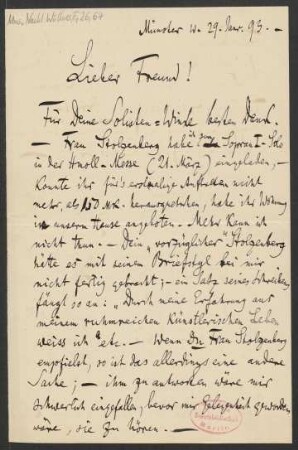 Mus. Nachl.
Münster W. 29. Jan. 93. –
Lieber Freund!
Für Deine Solisten=Winke besten Dank.
– Frau Stolzenberg habe ich zum Sopran I-Solo
in der Hmoll-Messe (21. März) eingeladen, –
konnte ihr für's erstmalige Auftreten nicht
mehr, als 150 Mk. herausnehmen, habe ihr Wohnung
in unserem Hause angeboten. – Mehr kann ich
nicht thun. – Dein „vorzüglicher" Stolzenberg
hätte es mit seinen bei mir
nicht fertig gebracht; – ein Satz seines Schreibens
fängt so an: „Durch meine Erfahrung aus
meinem ruhmreichen künstlerischen Leben
weiss ich" etc. – Wenn Du Frau Stolzenberg
empfielst, so ist das allerdings eine andere
Sache; – ihm zu antworten wäre mir
schwerlich eingefallen, bevor mir Gelegenheit geworden
wäre, sie zu hören. –